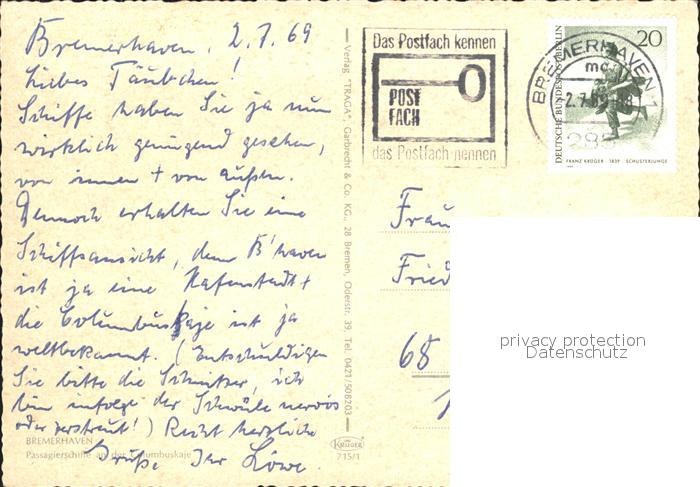 Bremerhaven, 2.7.69
Liebes Täubchen!
Schiffe haben Sie ja nun
wirklich genügend gesehen,
von innen + von außen.
Dennoch erhalten Sie eine
Schiffsansicht, denn B'haven
ist ja eine Hafenstadt +
die Columbuskaje ist ja
weltbekannt. (Entschuldigen
Sie bitte die Schnitzer, ich
bin infolge der Schwüle nervös
oder zerstreut!) Recht herzliche
Grüße Ihr Löwe.
BREMERHAVEN
Passagierschiffe an der Columbuskaje
Verlag "TRAGA", Garbrecht & Co. KG., 28 Bremen, Oderstr. 39, Tel. 0421/508203
KRÜGER
715/1
Das Postfach kennen
POST
FACH
das Postfach nennen
BREMERHAVEN 1
2.7.69
285
20
DEUTSCHE BUNDESPOST BERLIN
FRANZ KRÜGER · 1839 · SCHUSTERJUNGE
Frau
Fried
68
privacy protection
Datenschutz